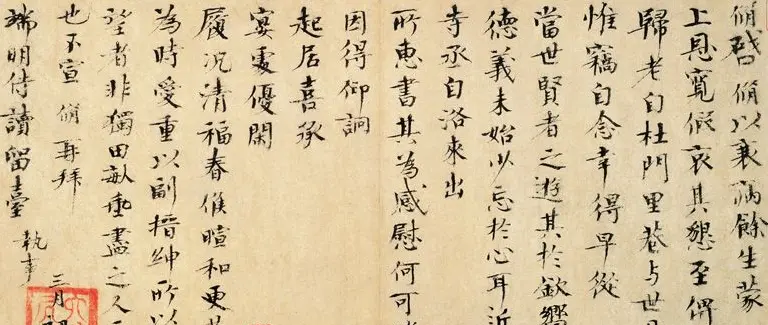 脩啓脩以衰病餘生蒙
上恩寬假哀其懇至俾
歸老自杜門里巷与世
惟竊自念幸得早從
當世賢者之遊其於欽嚮
德義未始少忘於心耳近
寺丞自洛來出
所惠書其為感慰何可
因得仰詢
起居喜承
宴處優閑
履況清福春候暄和更
為時愛重以副搢紳所以
望者非獨田畝垂盡之人
也不宣 脩再拜
端明侍讀留臺 執事
三月